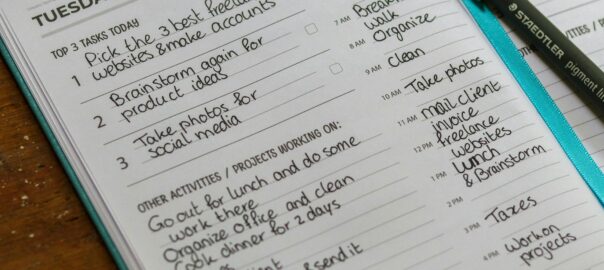 TUESDAY
TOP 3 TASKS TODAY
1 Pick the 3 best freelance
websites & make accounts
2 Brainstorm again for
product ideas
3 Take photos for
social media
OTHER ACTIVITIES / PROJECTS WORKING ON:
Go out for lunch and do some
work there
Organize office and clean
Cook dinner for 2 days
& send it
7 AM
walk
8 AM Organize
9 AM clean
10 AM Take photos
11 AM mail client
invoice
12 PM freelance
websites
1 PM lunch
& Brainstorm
2 PM
3 PM Taxes
4 PM work on
projects
STAEDTLER pigment